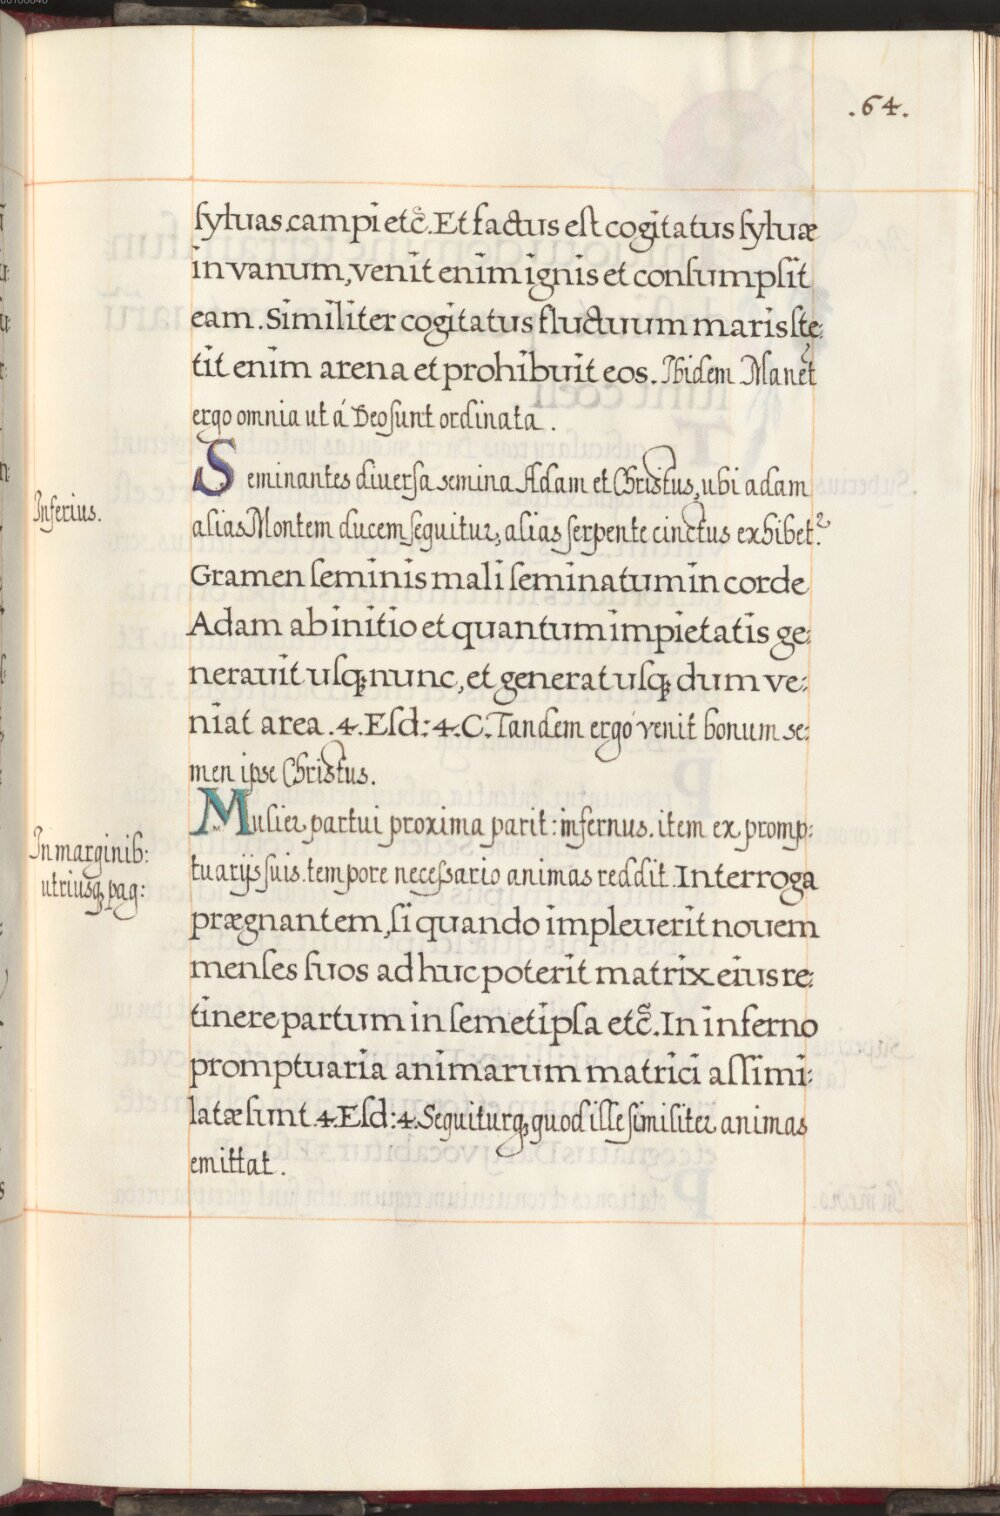 .64.
syluas campi etc̃. Et factus est cogitatus syluæ
in vanum, venit enim ignis et consumpsit
eam. Similiter cogitatus fluctuum maris ste:
tit enim arena et prohibuit eos. Ibidem Manet
ergo omnia ut á Deo sunt ordinata.
Inferius.
Seminantes diversa semina Adam et Christus, ubi adam
alias Montem ducem sequitur, alias serpente cinctus exhibet.
Gramen seminis mali seminatum in corde
Adam ab initio et quantum impietatis ge:
neravit usq; nunc, et generat usq; dum ve:
niat area. 4. Esd: 4. C. Tandem ergo venit bonum se:
men ipse Christus.
In marginib:
utriusq; pag:
Mulier partui proxima parit: infernus. item ex promp:
tuarijs suis. tempore necessario animas reddit. Interroga
prægnantem, si quando impleuerit nouem
menses suos adhuc poterit matrix eius re:
tinere partum in semetipsa etc̃. In inferno
promptuaria animarum matrici assimi:
latæ sunt. 4. Esd: 4. Sequitur q; quod ille similiter animas
emittat.